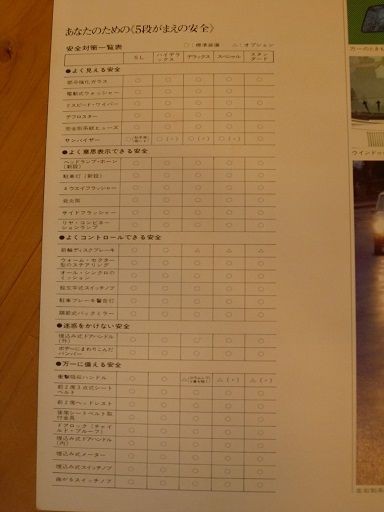 あなたのための《5段がまえの安全》
安全対策一覧表 ○：標準装備 △：オプション
SL ハイデラックス デラックス スペシャル スタンダード
●よく見える安全
部分強化ガラス ○ ○ ○ ○ ○
電動式ウォッシャー ○ ○ ○ ○ ○
2スピード・ワイパー ○ ○ ○ ○ ○
デフロスター ○ ○ ○ ○ ○
○ ○ ○ ○ ○
サンバイザー
●よく意思表示できる安全
ヘッドランプ・ホーン(新設) ○ ○ ○ ○ ○
駐車灯(新設) ○ ○ ○ ○ ○
4ウエイフラッシャー ○ ○ ○ ○ ○
発炎筒 ○ ○ ○ ○ ○
サイドフラッシャー ○ ○ ○ ○ ○
リヤ・コンビネーションランプ ○ ○ ○ ○ ○
●よくコントロールできる安全
前輪ディスクブレーキ ○ ○ △ △ △
ウォーム・セクター型のステアリング ○ ○ ○ ○ ○
オール・シンクロのミッション ○ ○ ○ ○ ○
絵文字式スイッチノブ ○ ○ ○ ○ ○
駐車ブレーキ警告灯 ○ ○ ○ ○ ○
脱落式バックミラー ○ ○ ○ ○ ○
●迷惑をかけない安全
埋込み式ドアハンドル(外) ○ ○ ○ ○ ○
ボデーにまわりこんだバンパー ○ ○ ○ ○ ○
●万一に備える安全
衝撃吸収ハンドル ○ ○
前2席3点式シートベルト ○ ○ ○ ○ ○
前2席ヘッドレスト ○ ○ ○ ○ ○
後席シートベルト取付金具 ○ ○ ○ ○ ○
ドアロック(チャイルド・プルーフ) ○ ○ ○ ○ ○
埋込み式ドアハンドル(内) ○ ○ ○ ○ ○
埋込み式メーター ○ ○ ○ ○ ○
埋込み式スイッチノブ ○ ○ ○ ○ ○
曲がるスイッチノブ ○ ○ ○ ○ ○